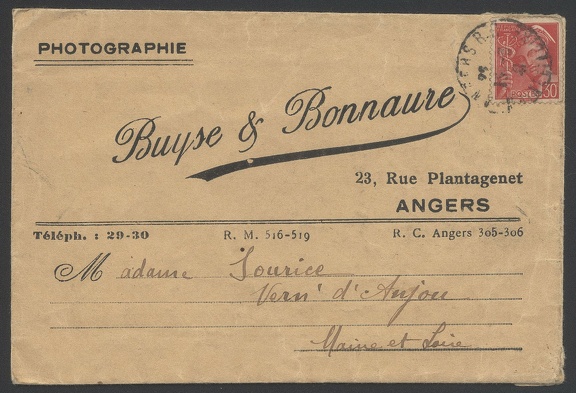 PHOTOGRAPHIE
Buyse & Bonnaure
23, Rue Plantagenet
ANGERS
Téléph. : 29-30 R. M. 516-519 R. C. Angers 305-306
Madame Sourice
Vern' d'Anjou
Maine et Loire
30